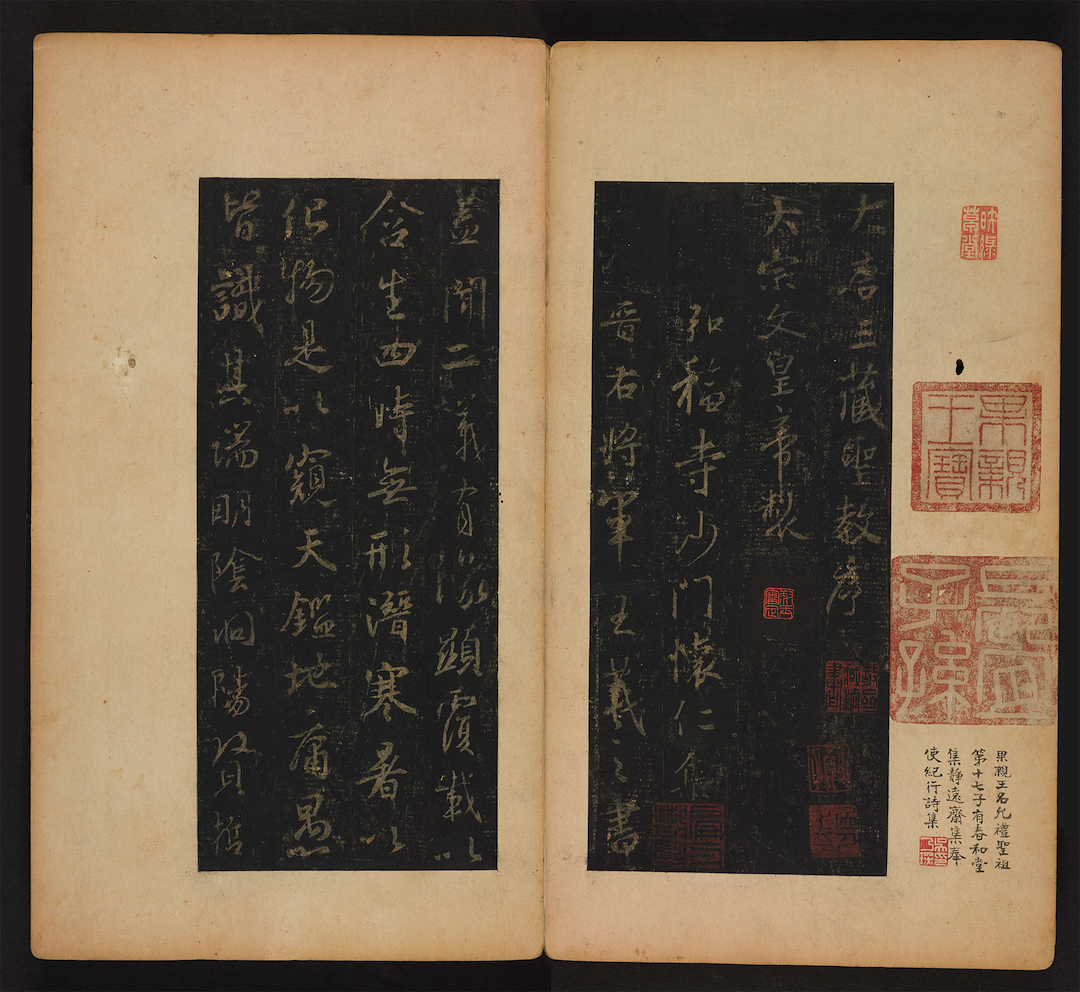 果親王寶
果親王名允禮聖祖
第十七子有春和堂
集靜遠齋集奉
使紀行詩集
大唐三藏聖教序
太宗文皇帝製
弘福寺沙門懷仁集
晉右將軍王羲之書
蓋聞二儀有像顯覆載以
含生四時無形潛寒暑以
化物是以窺天鑑地庸愚
皆識其端明陰洞陽賢哲